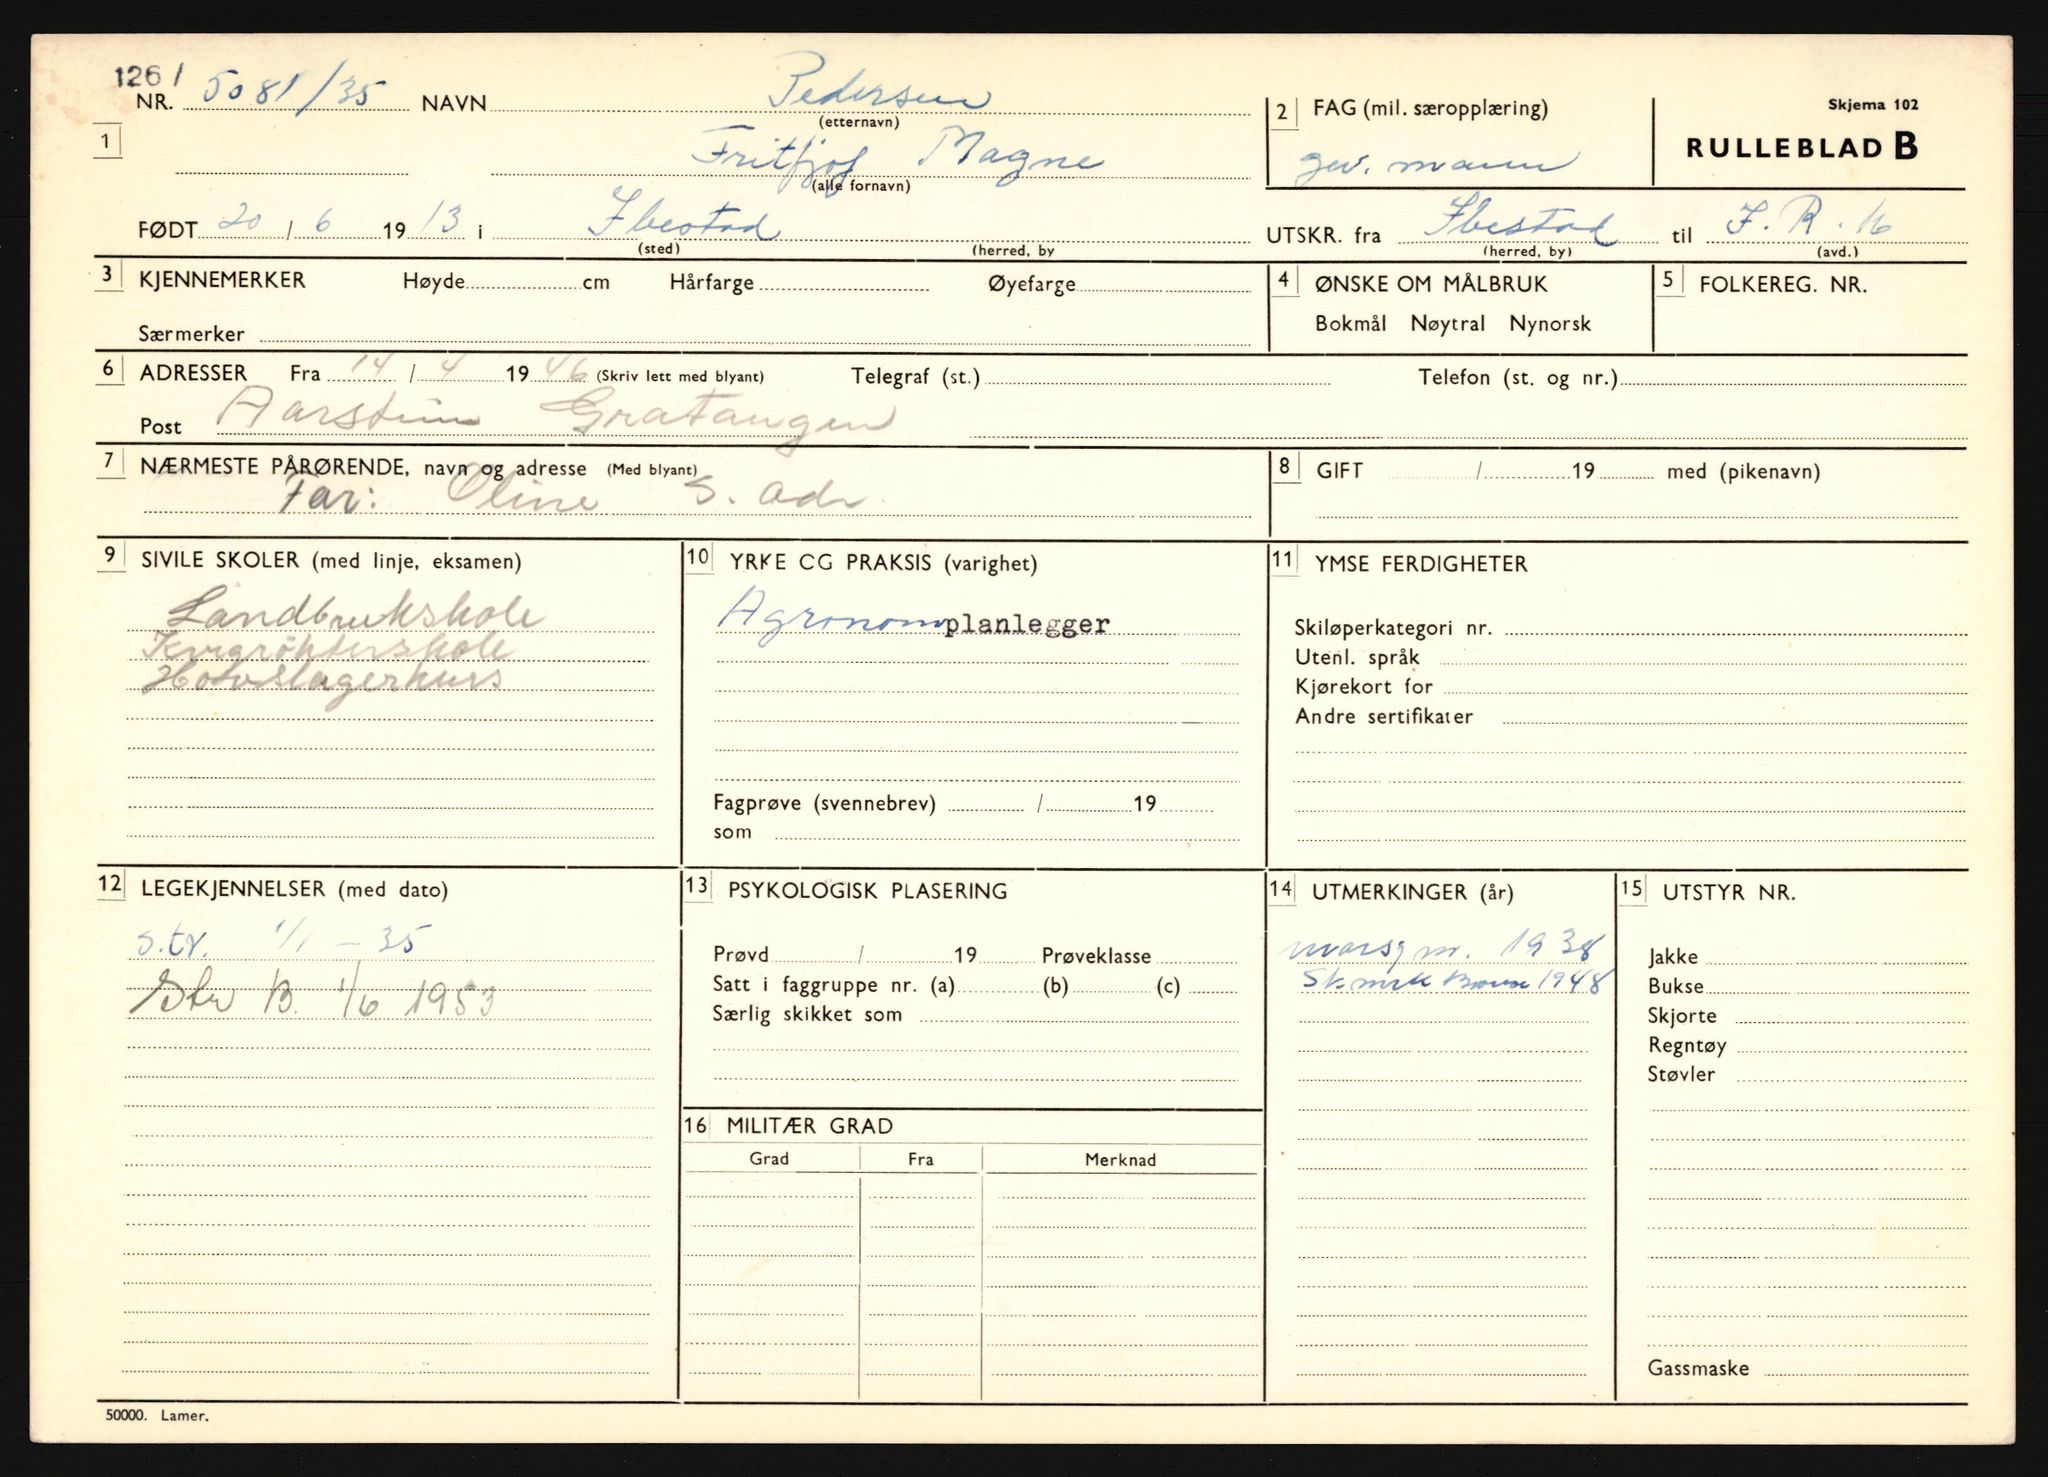 126/
NR. 5081/35 NAVN Pedersen
(etternavn)
1 Fritfjof Magne
(alle fornavn)
2 FAG (mil. særopplæring)
gev. mann
Skjema 102
RULLEBLAD B
FØDT 20 / 6 1913 i Ibestad
(sted) (herred, by
UTSKR. fra Ibestad til I.R. 16
(herred, by) (avd.)
3 KJENNEMERKER Høyde cm Hårfarge Øyefarge
Særmerker
4 ØNSKE OM MÅLBRUK
Bokmål Nøytral Nynorsk
5 FOLKEREG. NR.
6 ADRESSER Fra 14 / 4 1946 (Skriv lett med blyant) Telegraf (st.) Telefon (st. og nr.)
Post Aarstein Gratangen
7 NÆRMESTE PÅRØRENDE, navn og adresse (Med blyant)
Far: Oline s. adr.
8 GIFT / 19 med (pikenavn)
9 SIVILE SKOLER (med linje, eksamen)
Landbrukskole
Hovslagerkurs
10 YRKE CG PRAKSIS (varighet)
Agronom planlegger
Fagprøve (svennebrev) / 19
som
11 YMSE FERDIGHETER
Skiløperkategori nr.
Utenl. språk
Kjørekort for
Andre sertifikater
12 LEGEKJENNELSER (med dato)
s.tr. 1/1 – 35
Str B. 1/6 1953
13 PSYKOLOGISK PLASERING
Prøvd / 19 Prøveklasse
Satt i faggruppe nr. (a) (b) (c)
Særlig skikket som
14 UTMERKINGER (år)
marsj m. 1938
1948
15 UTSTYR NR.
Jakke
Bukse
Skjorte
Regntøy
Støvler
Gassmaske
16 MILITÆR GRAD
Grad Fra Merknad
50000. Lamer.